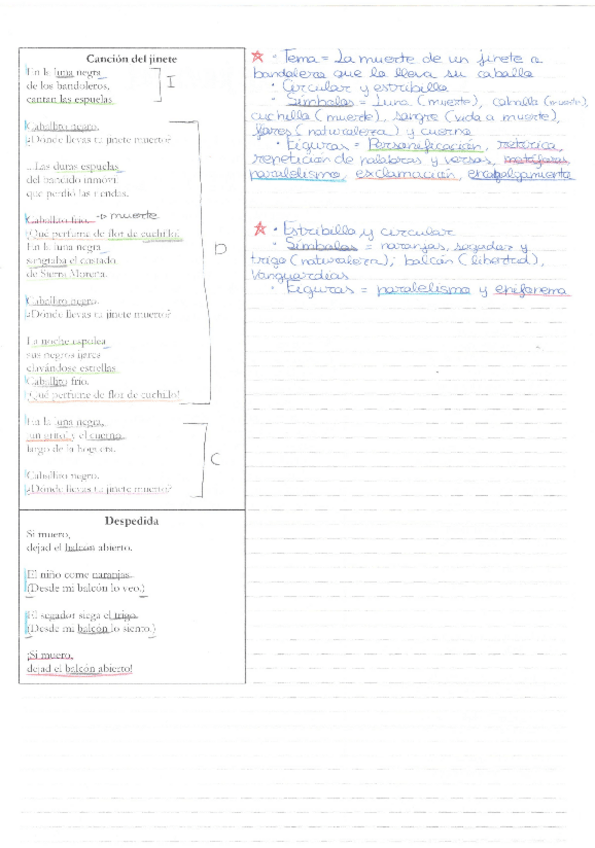 Canción del jinete
En la luna negra
de los bandoleros,
cantan las espuelas.
I
Caballito negro.
¿Dónde llevas tu jinete muerto?
...Las duras espuelas
del bandido inmóvil
que perdió las riendas.
Caballito frío. -> muerte
¡Qué perfume de flor de cuchillo!
En la luna negra
sangraba el costado
de Sierra Morena.
D
Caballito negro.
¿Dónde llevas tu jinete muerto?
La noche espolea
sus negros ijares
clavándose estrellas.
Caballito frío.
¡Qué perfume de flor de cuchillo!
En la luna negra,
¡un grito! y el cuerno
largo de la hoguera.
C
Caballito negro.
¿Dónde llevas tu jinete muerto?
Despedida
Si muero,
dejad el balcón abierto.
El niño come naranjas.
(Desde mi balcón lo veo.)
El segador siega el trigo.
(Desde mi balcón lo siento.)
¡Si muero,
dejad el balcón abierto!
• Tema = La muerte de un jinete o
bandolero que lo lleva su caballo
• Circular y estribillo
• Símbolos = Luna (muerte), caballo (muerte),
cuchillo (muerte), sangre (vida o muerte),
flores (naturaleza) y cuerno
• Figuras = Personificación, retórica,
repetición de palabras y versos, metáforas,
paralelismo, exclamación, encabalgamiento
• Estribillo y circular
• Símbolos = naranjas, segador y
trigo (naturaleza), balcón (libertad),
Vanguardias
• Figuras = paralelismo y epifonema